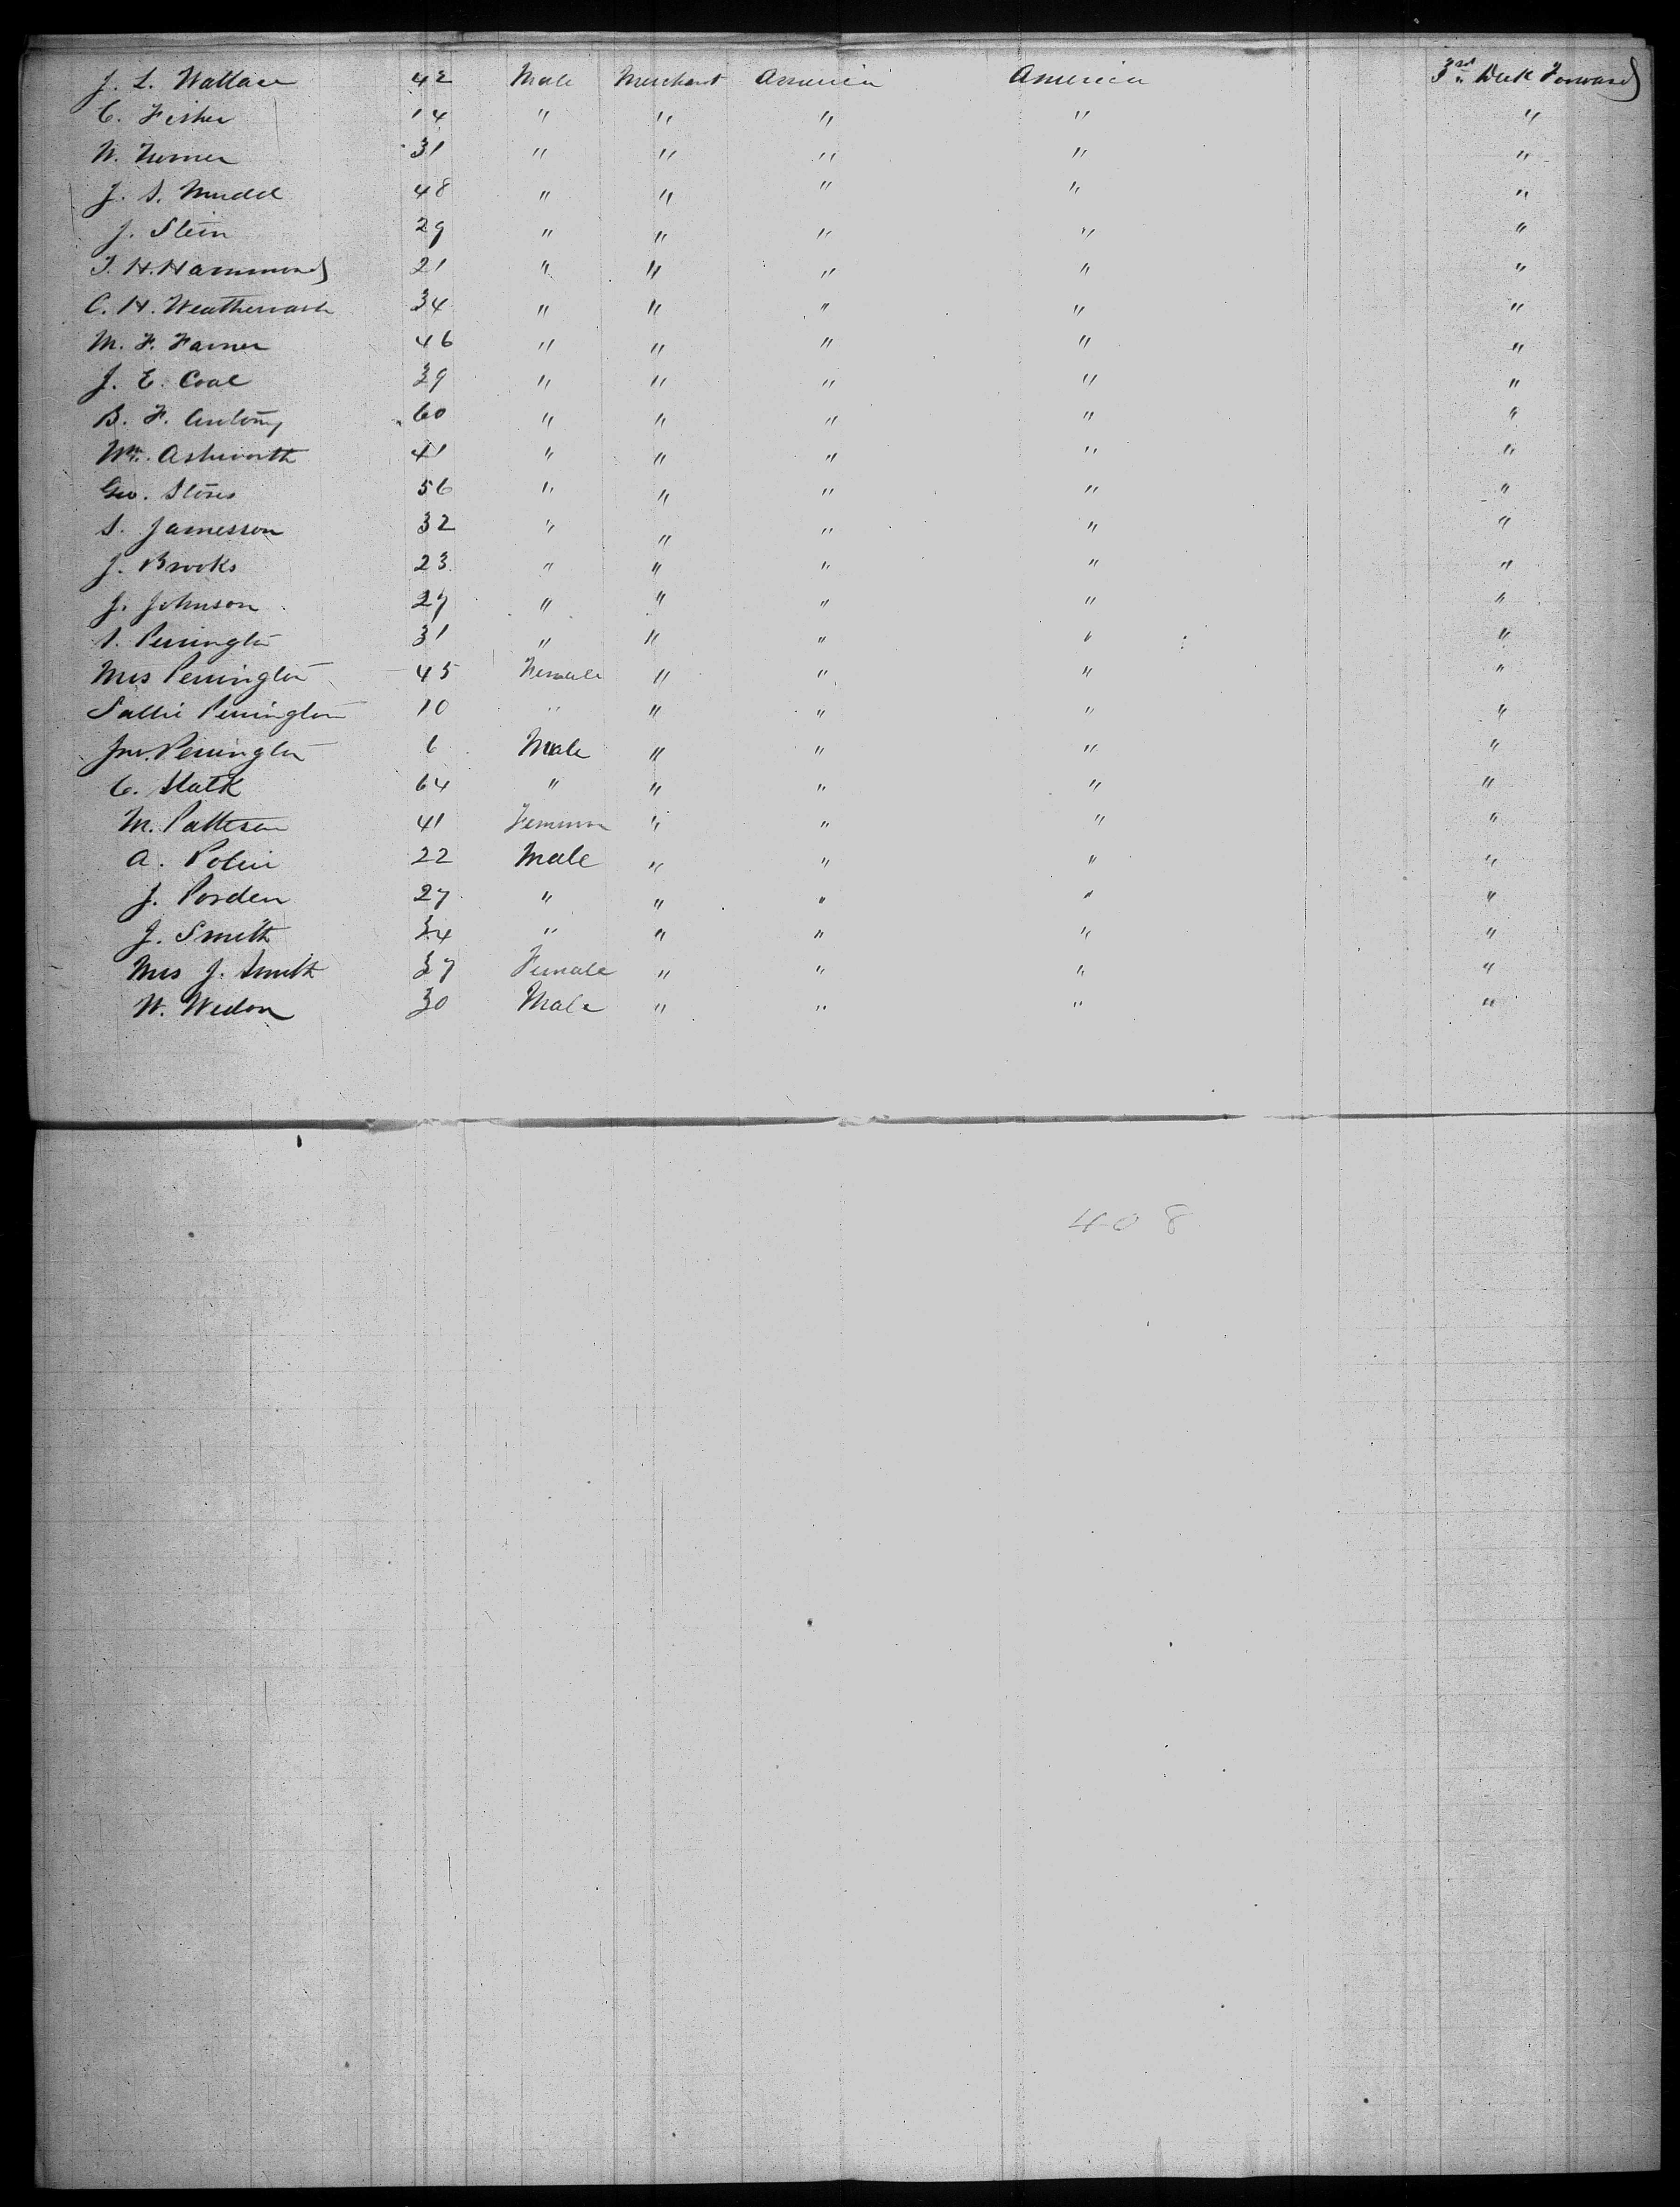 J. L. Wallace 42 Male Merchant America America 3rd Deck Forward
C. Fisher 14 " " " " "
W. Turner 31 " " " " "
J. S. Mudd 48 " " " " "
J. Stein 29 " " " " "
T. H. Hammond 21 " " " " "
C. H. Weatherwash 34 " " " " "
M. F. Farner 46 " " " " "
J. E. Coal 39 " " " " "
B. F. Antony 60 " " " " "
Wm. Ashworth 41 " " " " "
Geo. Stones 56 " " " " "
S. Jamesson 32 " " " " "
J. Brooks 23 " " " " "
J. Johnson 27 " " " " "
S. Pennington 31 " " " " "
Mrs Pennington 45 Female " " " "
Sallie Pennington 10 " " " " "
Jno. Pennington 6 Male " " " "
C. Statk 64 " " " " "
M. Patteson 41 " " " "
A. Polin 22 Male " " " "
J. Porden 27 " " " " "
J. Smith 34 " " " " "
Mrs J. Smith 37 Female " " " "
W. Wedon 30 Male " " " "
408